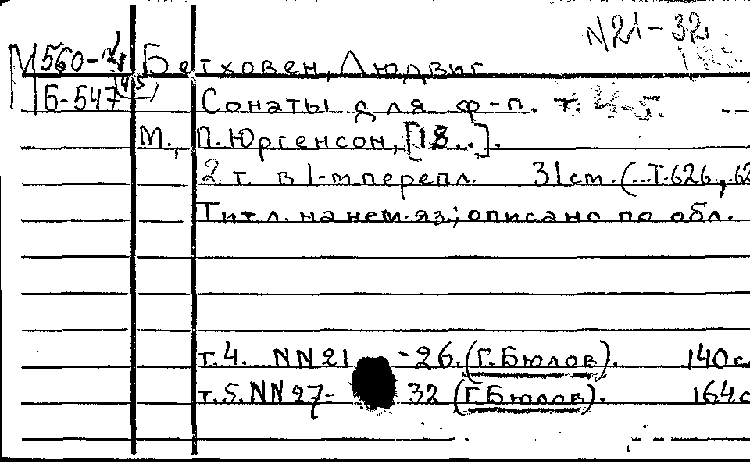 N21-32
М560-4 Бетховен, Людвиг
Б-547 Сонаты для ф-п. т. 4-5.
М., П. Юргенсон, [18..].
2 т. в 1-м перепл. 31см. (Т.626,
Тит. л. на нем. яз; описано по обл.
т.4. NN21 -26. (Г.Бюлов). 140с
т.5. NN27- 32 (Г.Бюлов). 164с